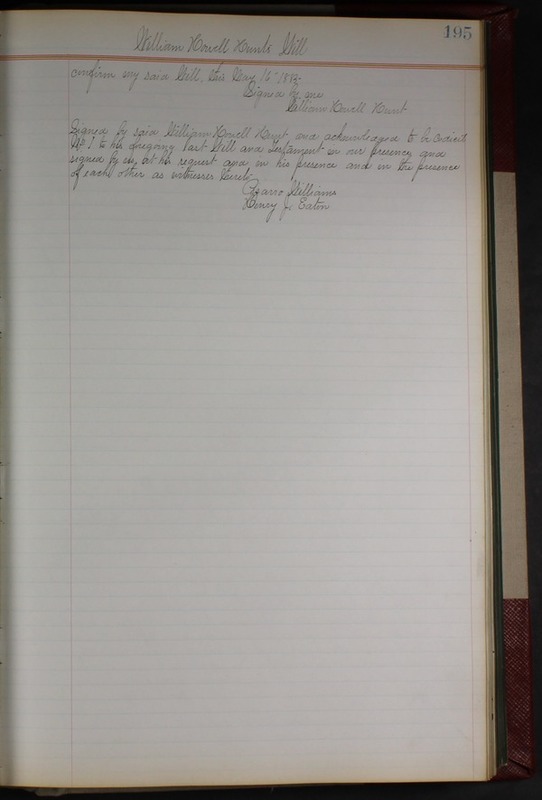 195
William Howell Hunt's Will
confirm my said Will, this May 15" 188
Signed by me
William Howell Hunt
Signed by said William Howell Hunt and acknowledged to be Codicil
No 1 to his foregoing Last Will and Testament in our presence and
signed by us, at his request and in his presence and in the presence
of each other as witnesses hereto
Williams
Henry J. Eaton